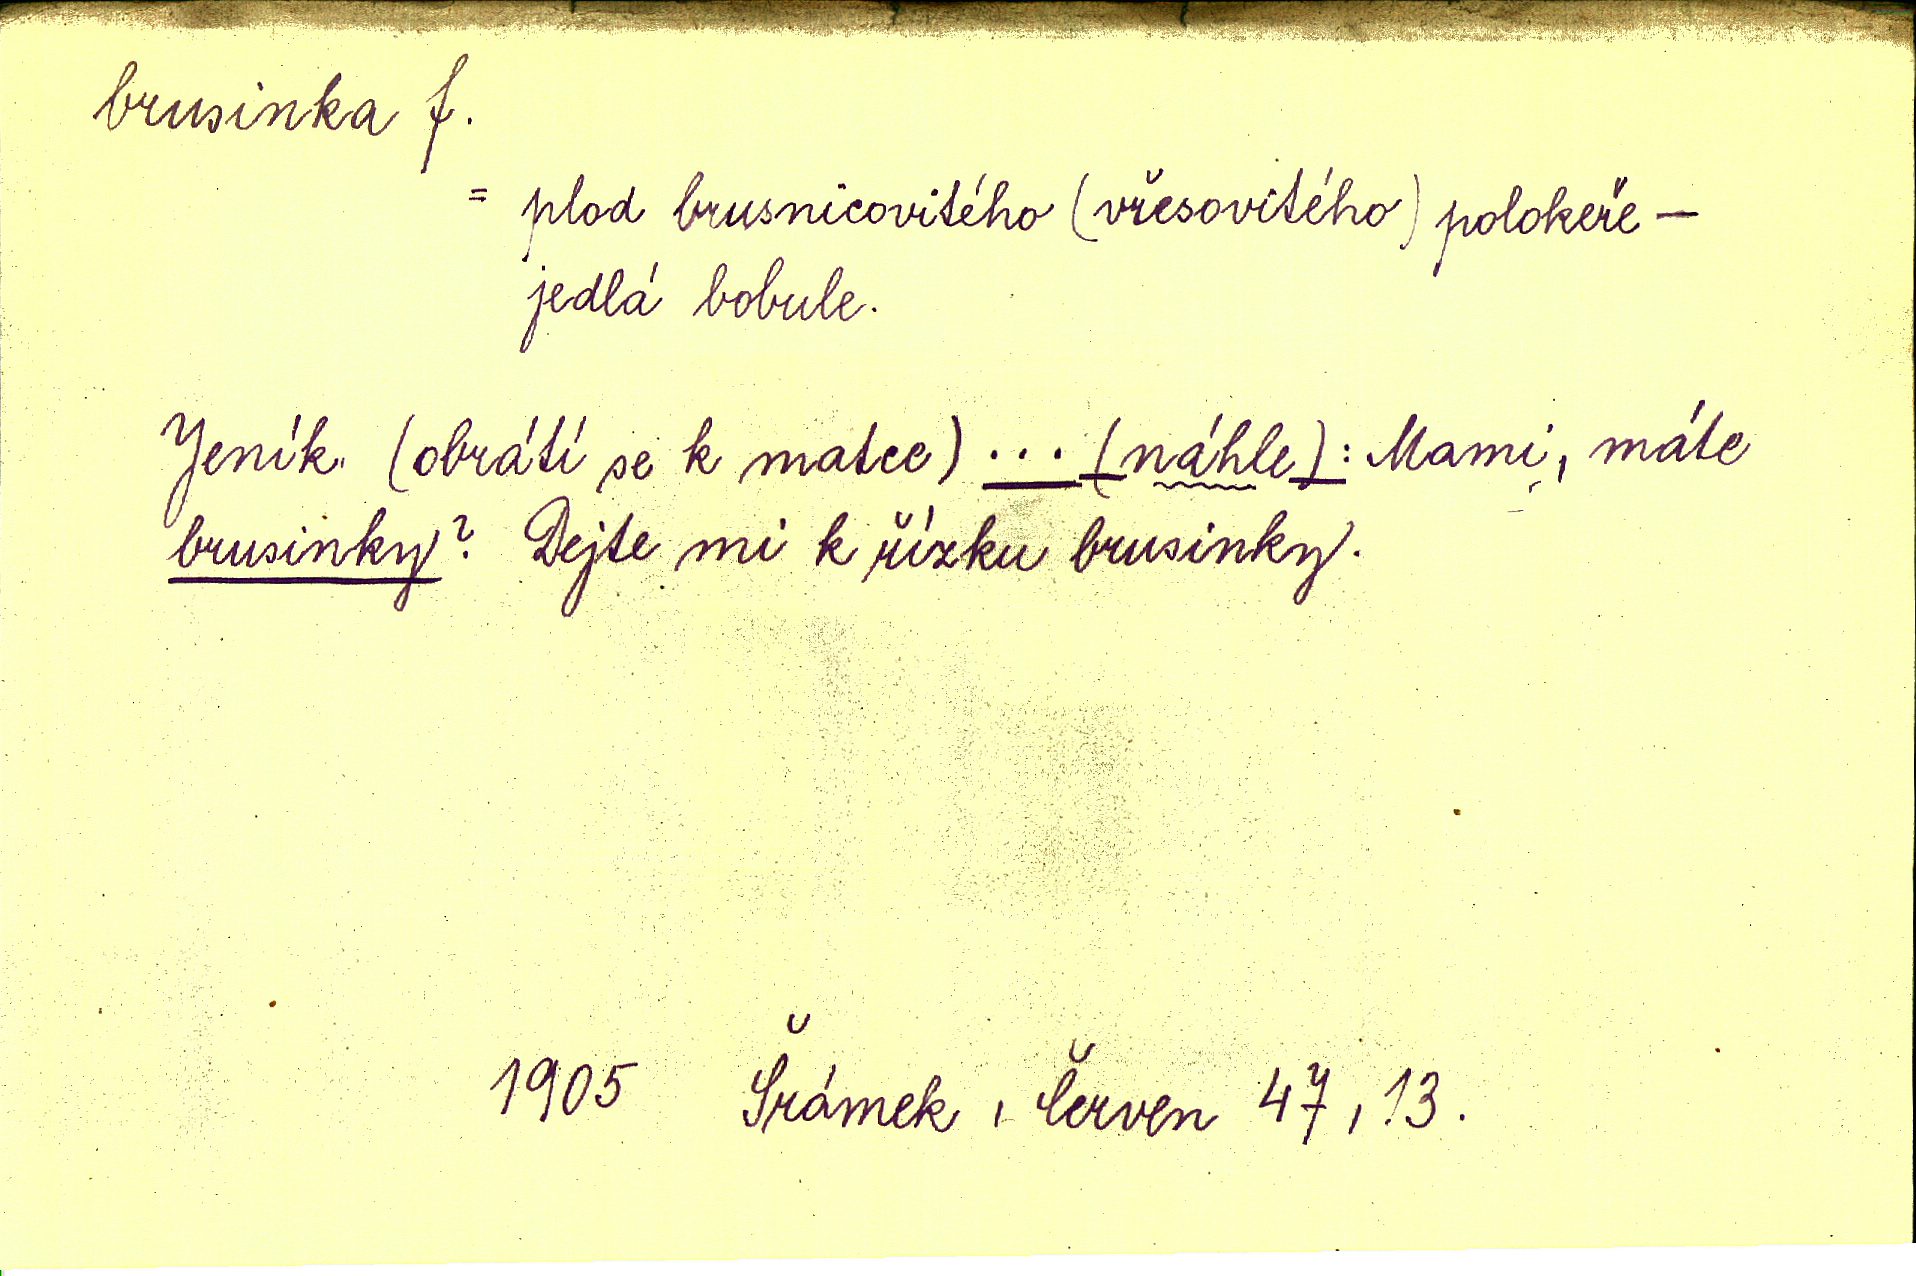 brusinka f.
= plod brusnicovitého (vřesovitého) polokeře —
jedlá bobule.
Jeník. (obrátí se k matce) ... (náhle): Mami, máte
brusinky? Dejte mi k řízku brusinky.
1905 Šrámek, Červen 47, 13.